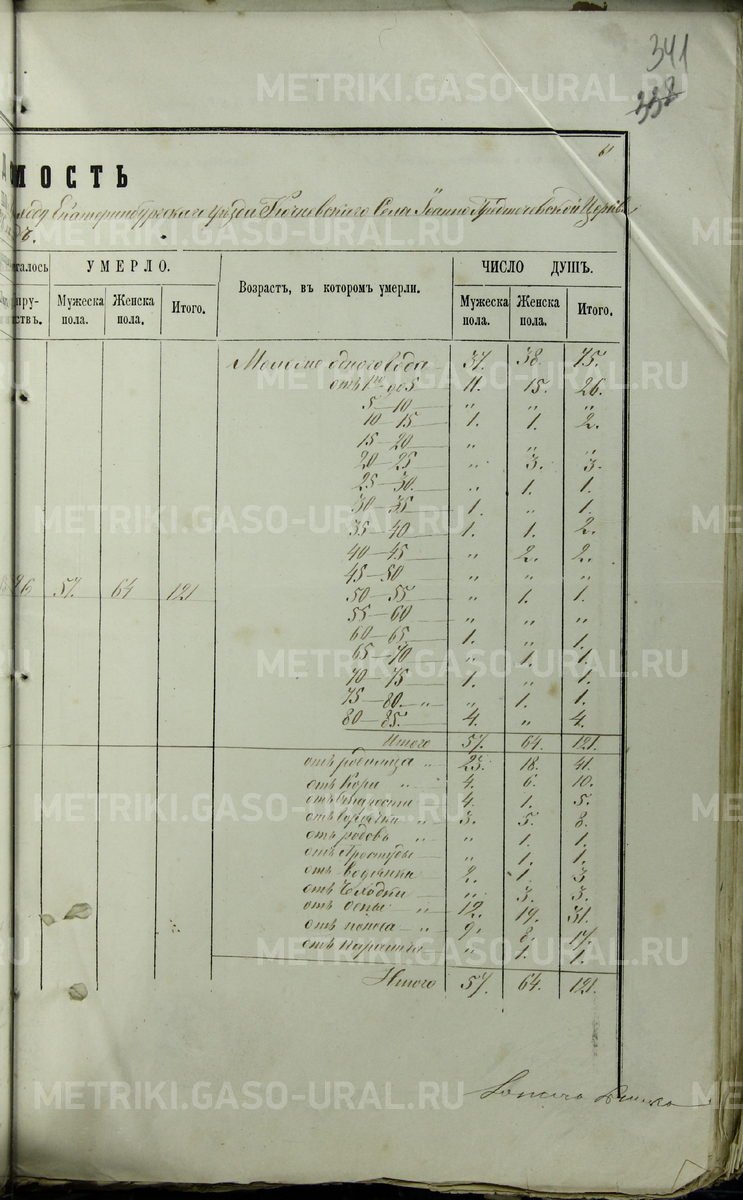 341
338
METRIKI.GASO-URAL.RU
61
МОСТЬ
году Екатеринбургского уѣзда Ключевского Села Іоанно-Предтечевской Церкви
УМЕРЛО.
Возрастъ, въ которомъ умерли.
ЧИСЛО ДУШЪ.
Мужеска пола. Женска пола. Итого.
Мужеска пола. Женска пола. Итого.
57. 64 121
37. 38. 75.
отъ 1го до 5 11. 15. 26.
5–10 „ „ „
10–15 1. 1. 2.
15–20 „ „ „
20–25 „ 3. 3.
25–30. „ 1. 1.
30–35 1. „ 1.
35–40 1. 1. 2.
40–45 „ 2. 2.
45–50 „ „ „
50–55 „ 1. 1.
55–60 „ „ „
60–65 1. „ 1.
65–70 „ 1. 1.
70–75 1. „ 1.
75–80. „ „ 1. 1.
80–85. 4. „ 4.
Итого 57. 64. 121.
отъ родимца „ 23. 18. 41.
отъ Кори „ 4. 6. 10.
отъ 4. 1. 5.
отъ горячки „ 3. 5. 8.
отъ родовъ „ „ 1. 1.
отъ Простуды „ 1. 1.
отъ Водянки 2. 1. 3
отъ Чахотки „ 3. 3.
отъ Оспы „ 12. 19. 31.
отъ поноса „ 9. 8. 17.
отъ „ 1. 1.
Итого 57. 64. 121.